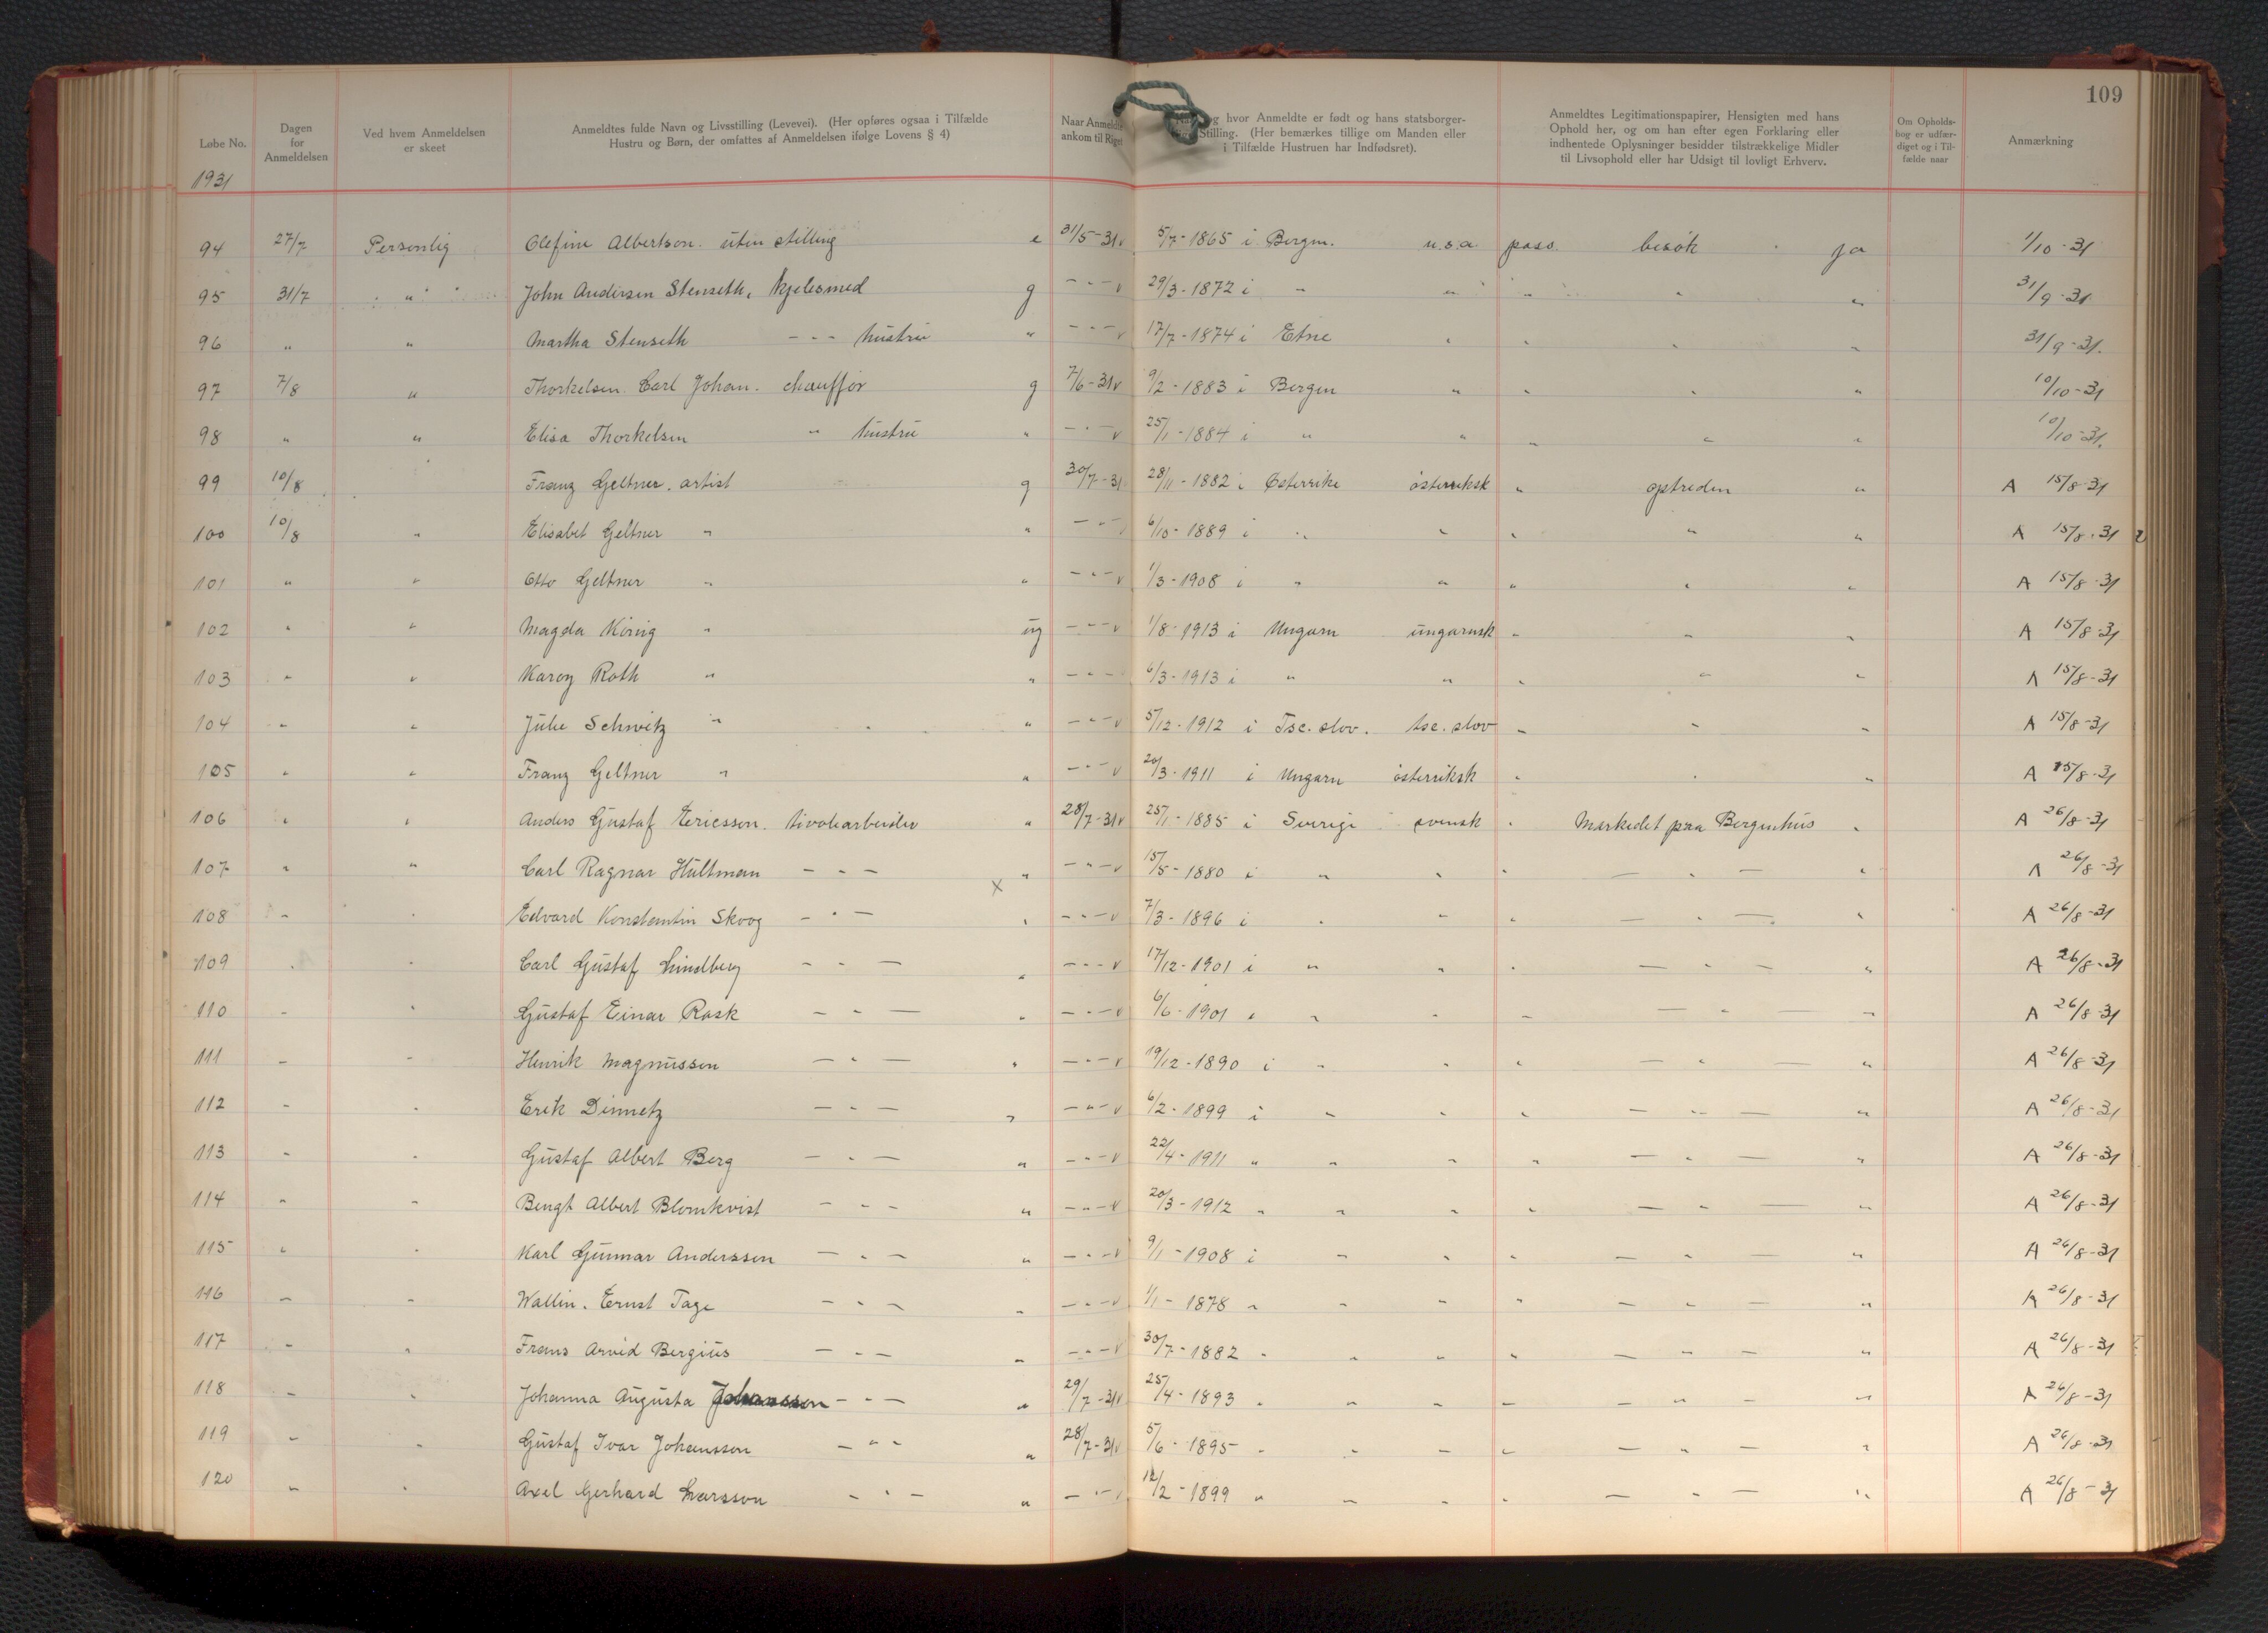 109
Løbe No.
Dagen for Anmeldelsen
Ved hvem Anmeldelsen er skeet
Anmeldtes fulde Navn og Livsstilling (Levevei). (Her opføres ogsaa i Tilfælde Hustru og Børn, der omfattes af Anmeldelsen ifølge Lovens § 4)
Naar Anmeldte ankom til Riget
og hvor Anmeldte er født og hans statsborger- Stilling. (Her bemærkes tillige om Manden eller i Tilfælde Hustruen har Indfødsret).
Anmeldtes Legitimationspapirer, Hensigten med hans Ophold her, og om han efter egen Forklaring eller indhentede Oplysninger besidder tilstrækkelige Midler til Livsophold eller har Udsigt til lovligt Erhverv.
Om Opholds- bog er udfær- diget og i Til- fælde naar
Anmærkning
1931
94 27/7 Personlig Olefine Albertson. uten stilling e 31/5-31 v 5/7-1865 i Bergen. u.s.a. pass. besök ja 1/10-31
95 31/7 " John Andersen Stenseth, kjelesmed g - " - v 29/3-1872 i " " " " " 31/9-31
96 " " Martha Stenseth - " - hustru " - " - v 17/7-1874 i Etne " " " " 31/9-31.
97 7/8 " Thorkelsen. Carl Johan. chauffør g 7/6-31 v 9/2-1883 i Bergen " " " " 10/10-31
98 " " Elisa Thorkelsen " hustru " - " - v 25/1-1884 i " " " " " 10/10-31.
99 10/8 Franz Geltner. artist g 30/7-31 28/11-1882 i Østerrike österriksk " optreden " A 15/8-31
100 10/8 " Elisabet Geltner " " - " - 6/10-1889 i " " " " " A 15/8-31
101 " " Otto Geltner " " - " - v 1/3-1908 i " " " " " A 15/8-31
102 " " Magda König " ug - " - v 1/8-1913 i Ungarn ungarnsk " " " A 15/8-31
103 " " Karoy Roth " " - " - 6/3-1913 i " " " " " A 15/8-31
104 " " Julie Schwitz " " - " - v 5/12-1912 i Tsc. slov. tsc. slov " " " A 15/8-31
105 " " Franz Geltner " " - " - v 20/3-1911 i Ungarn österriksk " " " A 15/8-31
106 " " Anders Gustaf Ericsson. tivoliarbeider " 28/7-31 v 25/1-1885 i Sverige svensk " Markedet paa Bergenhus " A 26/8-31
107 " " Carl Ragnar Hultman - " - x " - " - v 15/5-1880 i " " " - " - " A 26/8-31
108 " " Edvard Konstantin Skoog - " - " - " - v 7/3-1896 i " " " - " - " A 26/8-31
109 " " Carl Gustaf Lindberg - " - " - " - v 17/12-1901 i " " " - " - " A 26/8-31
110 " " Gustaf Einar Rask - " - " - " - v 6/6-1901 " " " " - " - " A 26/8-31
111 " " Henrik Magnusson - " - " - " - v 19/12-1890 i " " " - " - " A 26/8-31
112 " " Erik Dinnetz - " - " - " - v 6/2-1899 i " " " - " - " A 26/8-31
113 " " Gustaf Albert Berg - " - " - " - v 22/4-1911 " " " " - " - " A 26/8-31
114 " " Bengt Albert Blomkvist - " - " - " - v 20/3-1912 " " " " - " - " A 26/8-31
115 " " Karl Gunnar Anderssen - " - " - " - v 9/1-1908 i " " " - " - " A 26/8-31
116 " " Wallin. Ernst Tage - " - " - " - v 1/1-1878 " " " " - " - " A 26/8-31
117 " " Frans Arvid Bergius - " - " - " - v 30/7-1882 " " " " - " - " A 26/8-31
118 " " Johanna Augusta Johansson - " - " 29/7-31 v 25/4-1893 " " " " - " - " A 26/8-31
119 " " Gustaf Ivar Johansson - " - " 28/7-31 v 5/6-1895 " " " " - " - " A 26/8-31
120 " " Axel Gerhard Larsson - " - " - " - 12/2-1899 " " " " - " - " A 26/8-31